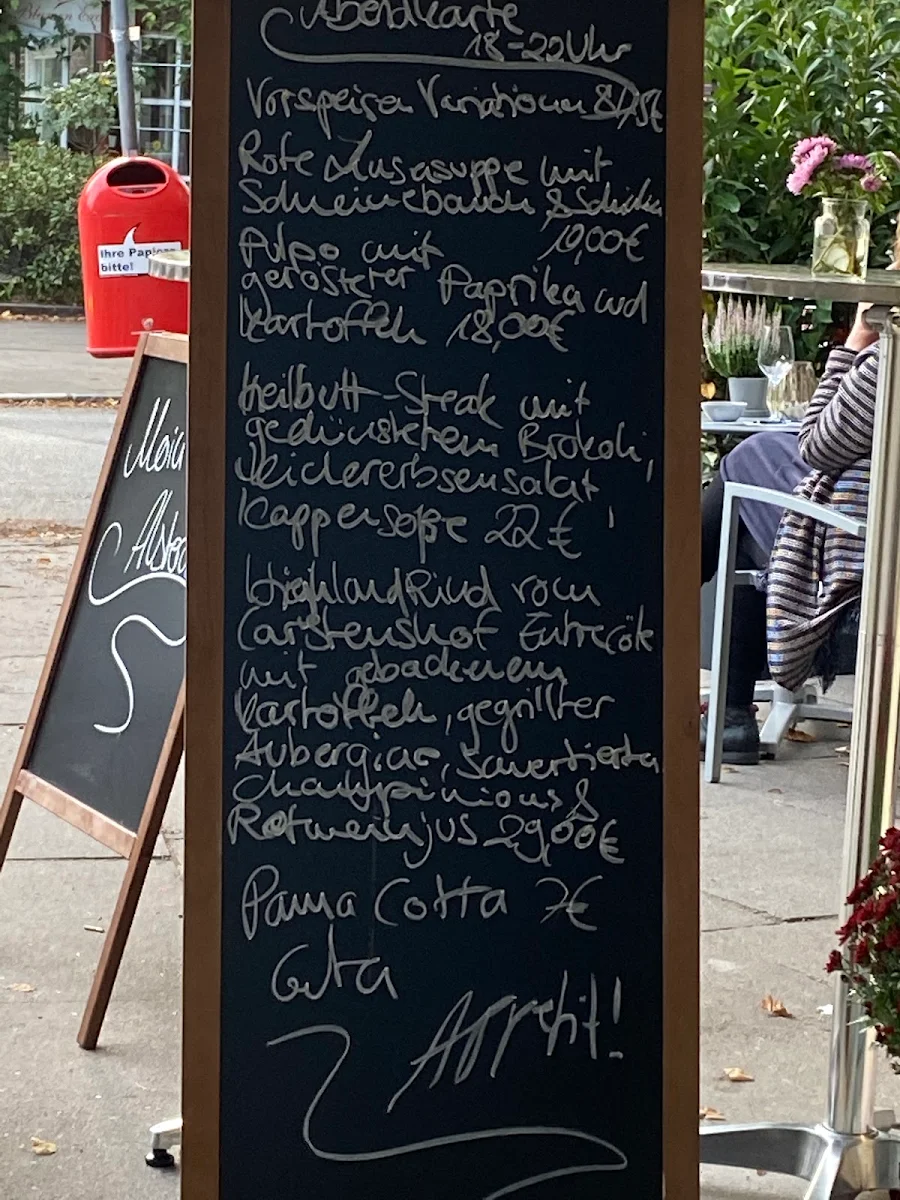 Abendkarte
18-22 Uhr
Vorspeisen Variationen
Rote Linsensuppe mit
Schweinebauch &
10,00€
Pulpo mit
gerösteter Paprika und
Kartoffeln 18,00€
Heilbutt-Steak mit
gedünstetem Brokoli,
Kichererbsensalat
Kappersoße 22€
Highland Rind vom
Carstenshof Entrecôte
mit gebackenem
Kartoffeln, gegrillter
Aubergine, Sautierten
Champinions &
Rotweinjus 29,00€
Panna Cotta 7€
Guten
Appetit!
Ihre Papiere
bitte!